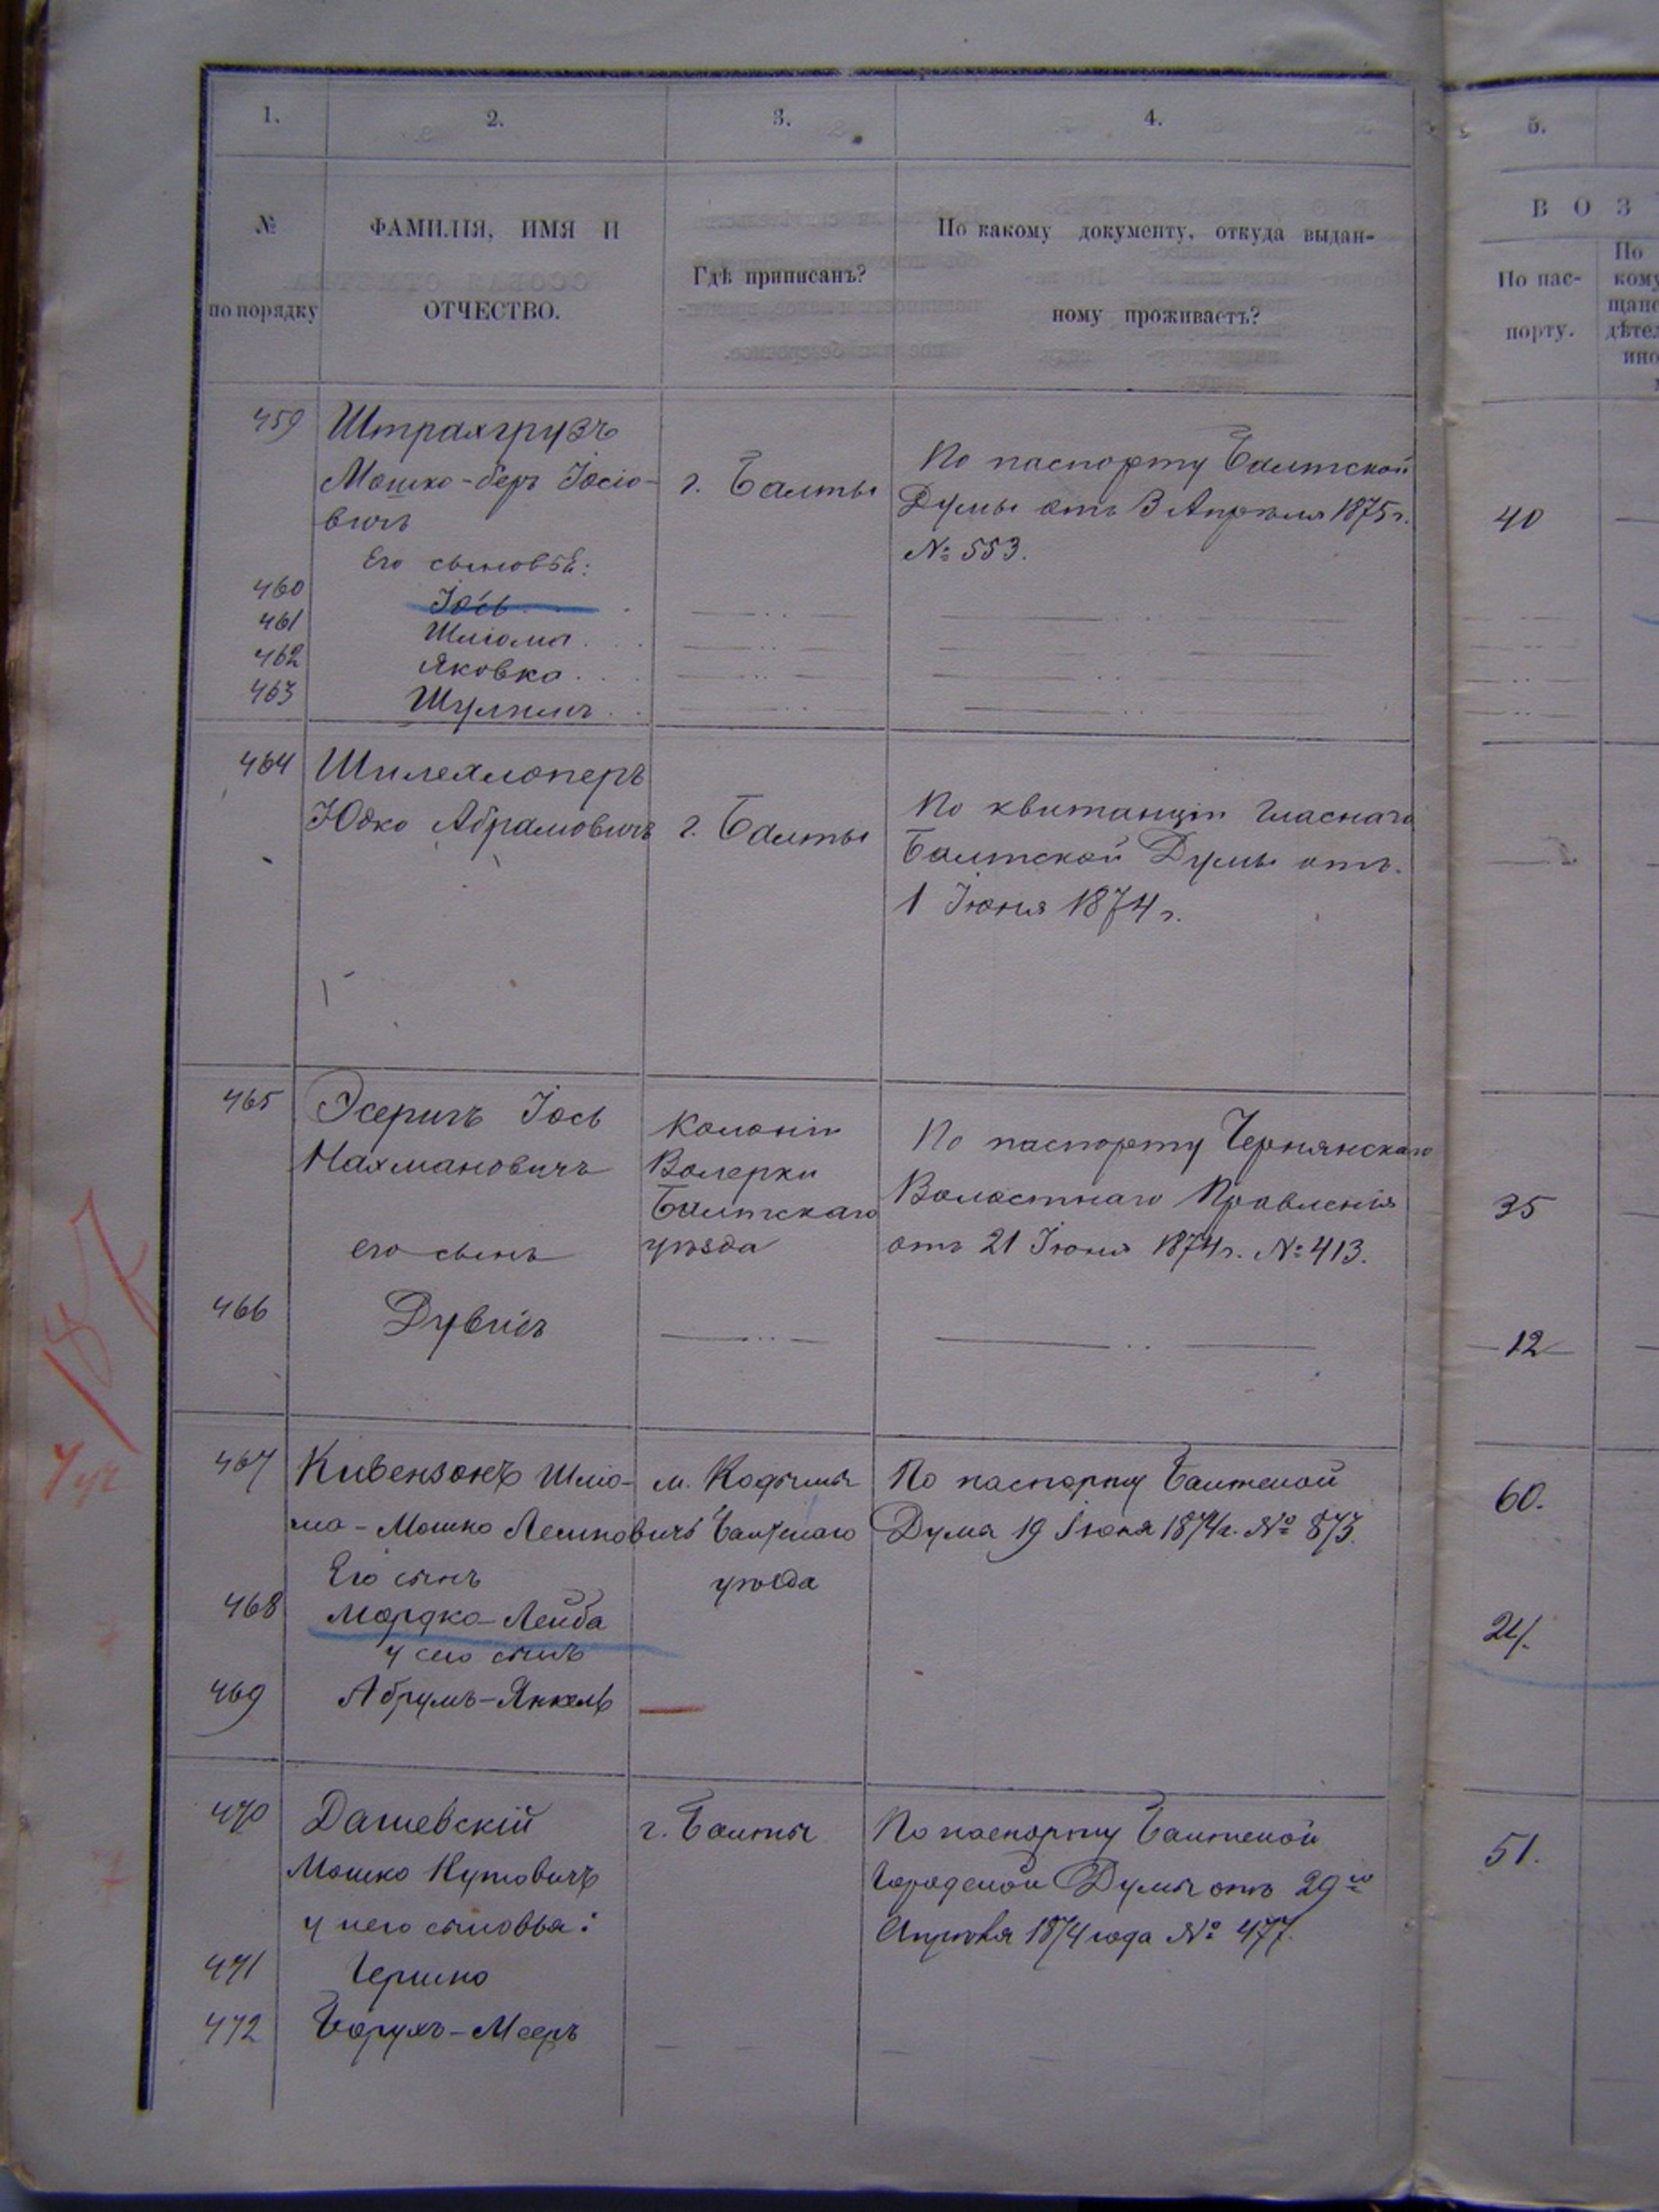 1. 2. 3. 4. 5.
№ по порядку
ФАМИЛІЯ, ИМЯ И
ОТЧЕСТВО.
Гдѣ приписанъ?
По какому документу, откуда выдан-
ному проживаетъ?
ВОЗ
По пас-
порту.
По
кому
щанс
дѣтел
ино
459 Штрахгрузъ
Мошко-беръ Іосіо- г. Балты По паспорту Балтской
вичъ Думы отъ 3 Апрѣля 1875 г. 40
№ 553.
Его сыновьѣ:
460 Іось
461 Шліома
462 Яковка
463 Шулимъ
464 Шилехлоперъ
Юдко Абрамовичъ г. Балты По квитанціи Гласнаго
Балтской Думы отъ
1 Іюня 1874 г.
465 Эсеригъ Іось Колоніи По паспорту Чернянскаго
Нахмановичъ Волерки Волостнаго Правленія 35
Балтскаго
его сынъ уѣзда отъ 21 Іюня 1874 г. № 413.
466 Дувидъ 12
467 Кивензонъ Шліо- м. Кодымы По паспорту Балтской 60.
ма-Мошко Лейповичъ Балтскаго Дума 19 Іюня 1874 г. № 873.
Его сынъ уѣзда
468 Мордко-Лейба 24.
у сего сынъ
469 Абрумъ-Янкель
470 Дашевскій г. Балты По паспорту Балтской 51.
Мошко Нутовичъ Городской Думы отъ 29го
у него сыновья: Апрѣля 1874 года № 477.
471 Гершко
472 Борухъ-Мееръ